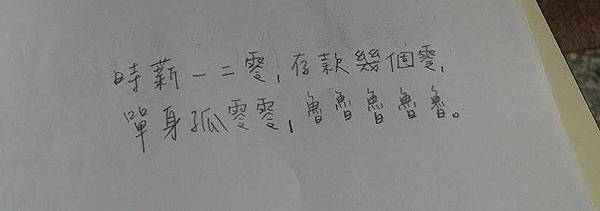 時薪一二零,存款幾個零,
單身孤零零,魯魯魯魯魯。